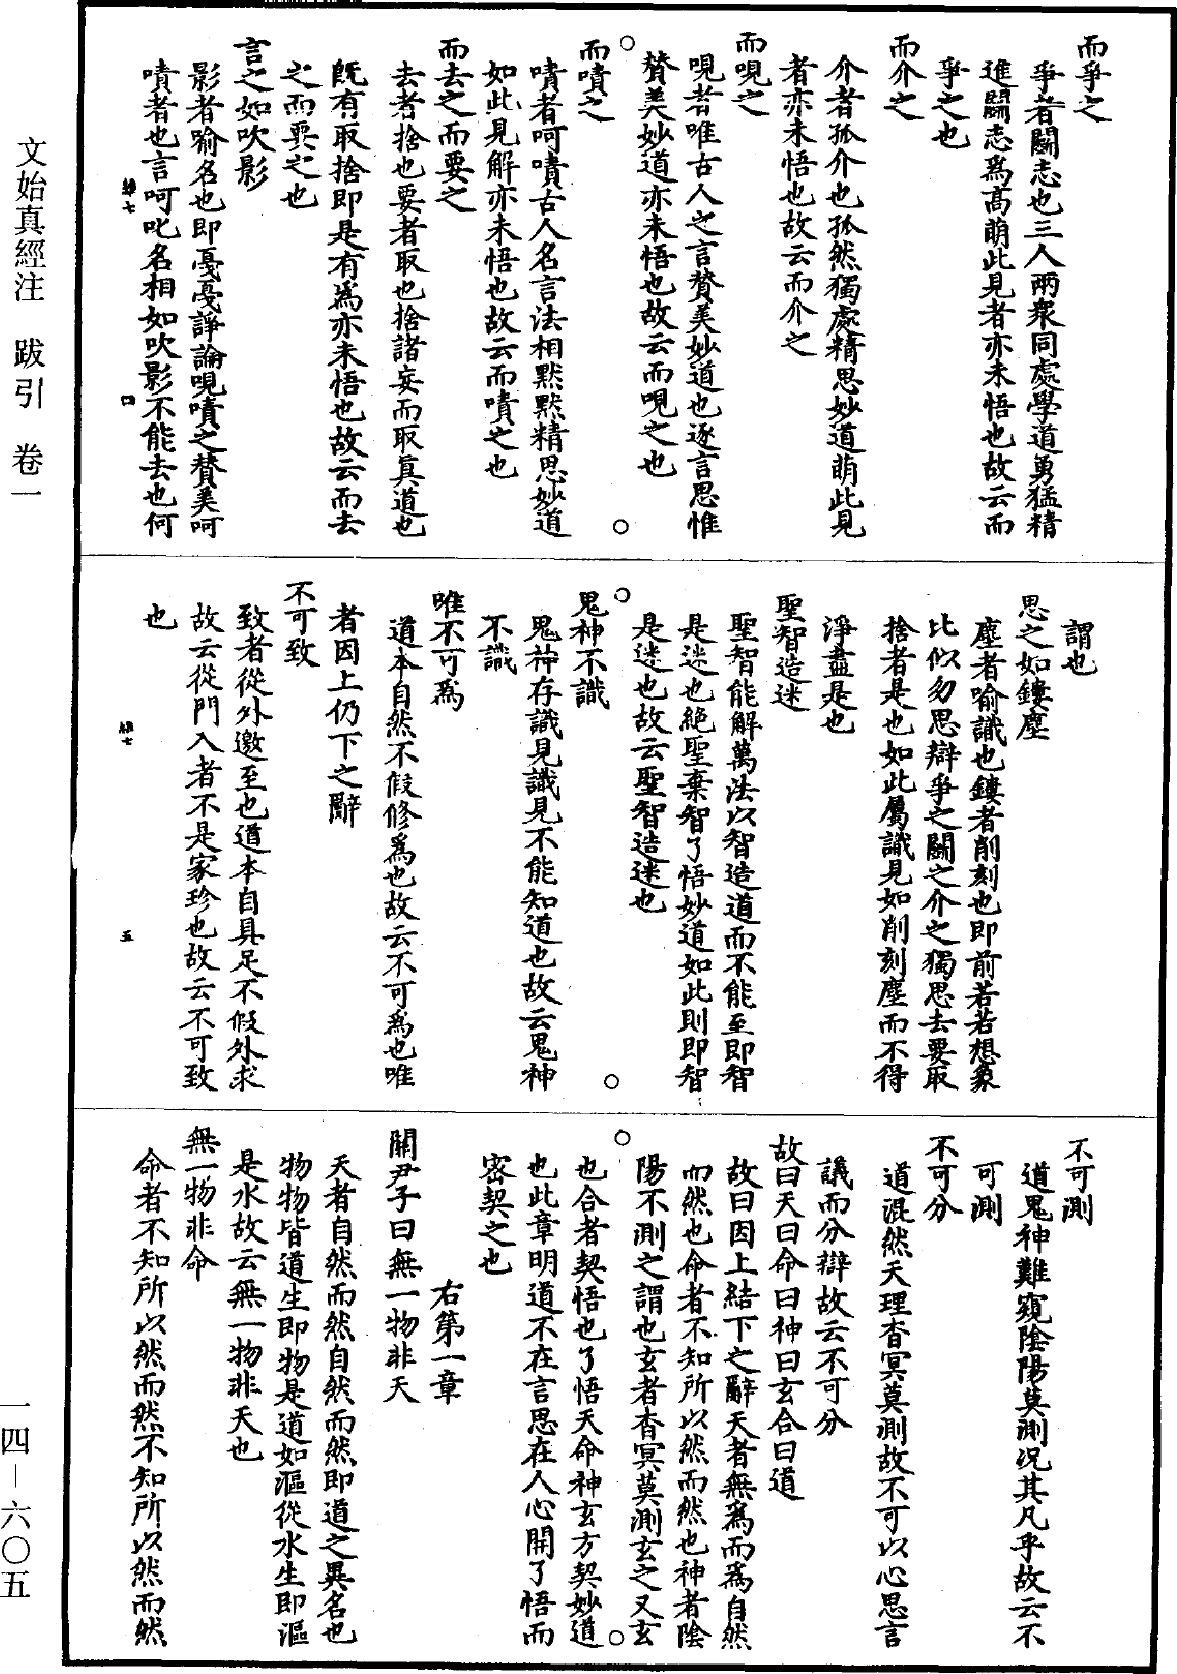 而爭之
爭者鬬志也三人兩衆同處學道勇猛精
進鬬志爲高萌此見者亦未悟也故云而
爭之也
而介之
介者孤介也孤然獨處精思妙道萌此見
者亦未悟也故云而介之
而哯之
哯者唯古人之言贊美妙道也逐言思惟
贊美妙道亦未悟也故云而哯之也
而嘖之
嘖者呵嘖古人名言法相黙黙精思妙道
如此見解亦未悟也故云而嘖之也
而去之而要之
去者捨也要者取也捨諸妄而取眞道也
既有取捨即是有爲亦未悟也故云而去
之而要之也
言之如吹影
影者喻名也即戞戞諍論哯嘖之贊美呵
嘖者也言呵叱名相如吹影不能去也何
謂也
思之如鏤塵
塵者喻識也鏤者削刻也即前若若想象
比似勿思辯爭之鬬之介之獨思去要取
捨者是也如此屬識見如削刻塵而不得
淨盡是也
聖智造迷
聖智能解萬法以智造道而不能至即智
是迷也絶聖棄智了悟妙道如此則即智
是迷也故云聖智造迷也
鬼神不識
鬼神存識見識見不能知道也故云鬼神
不識
唯不可爲
道本自然不假修爲也故云不可爲也唯
者因上仍下之辭
不可致
致者從外邀至也道本自具足不假外求
故云從門入者不是家珍也故云不可致
也
不可測
道鬼神難窺陰陽莫測况其凡乎故云不
可測
不可分
道混然天理杳冥莫測故不可以心思言
議而分辯故云不可分
故曰天曰命曰神曰玄合曰道
故曰因上結下之辭天者無爲而爲自然
而然也命者不知所以然而然也神者陰
陽不測之謂也玄者杳冥莫測玄之又玄
也合者契悟也了悟天命神玄方契妙道
也此章明道不在言思在人心開了悟而
密契之也
右第一章
關尹子曰無一物非天
天者自然而然自然而然即道之異名也
物物皆道生即物是道如漚從水生即漚
是水故云無一物非天也
無一物非命
命者不知所以然而然不知所以然而然
文始真經注　跋引　卷一
一四－六〇五